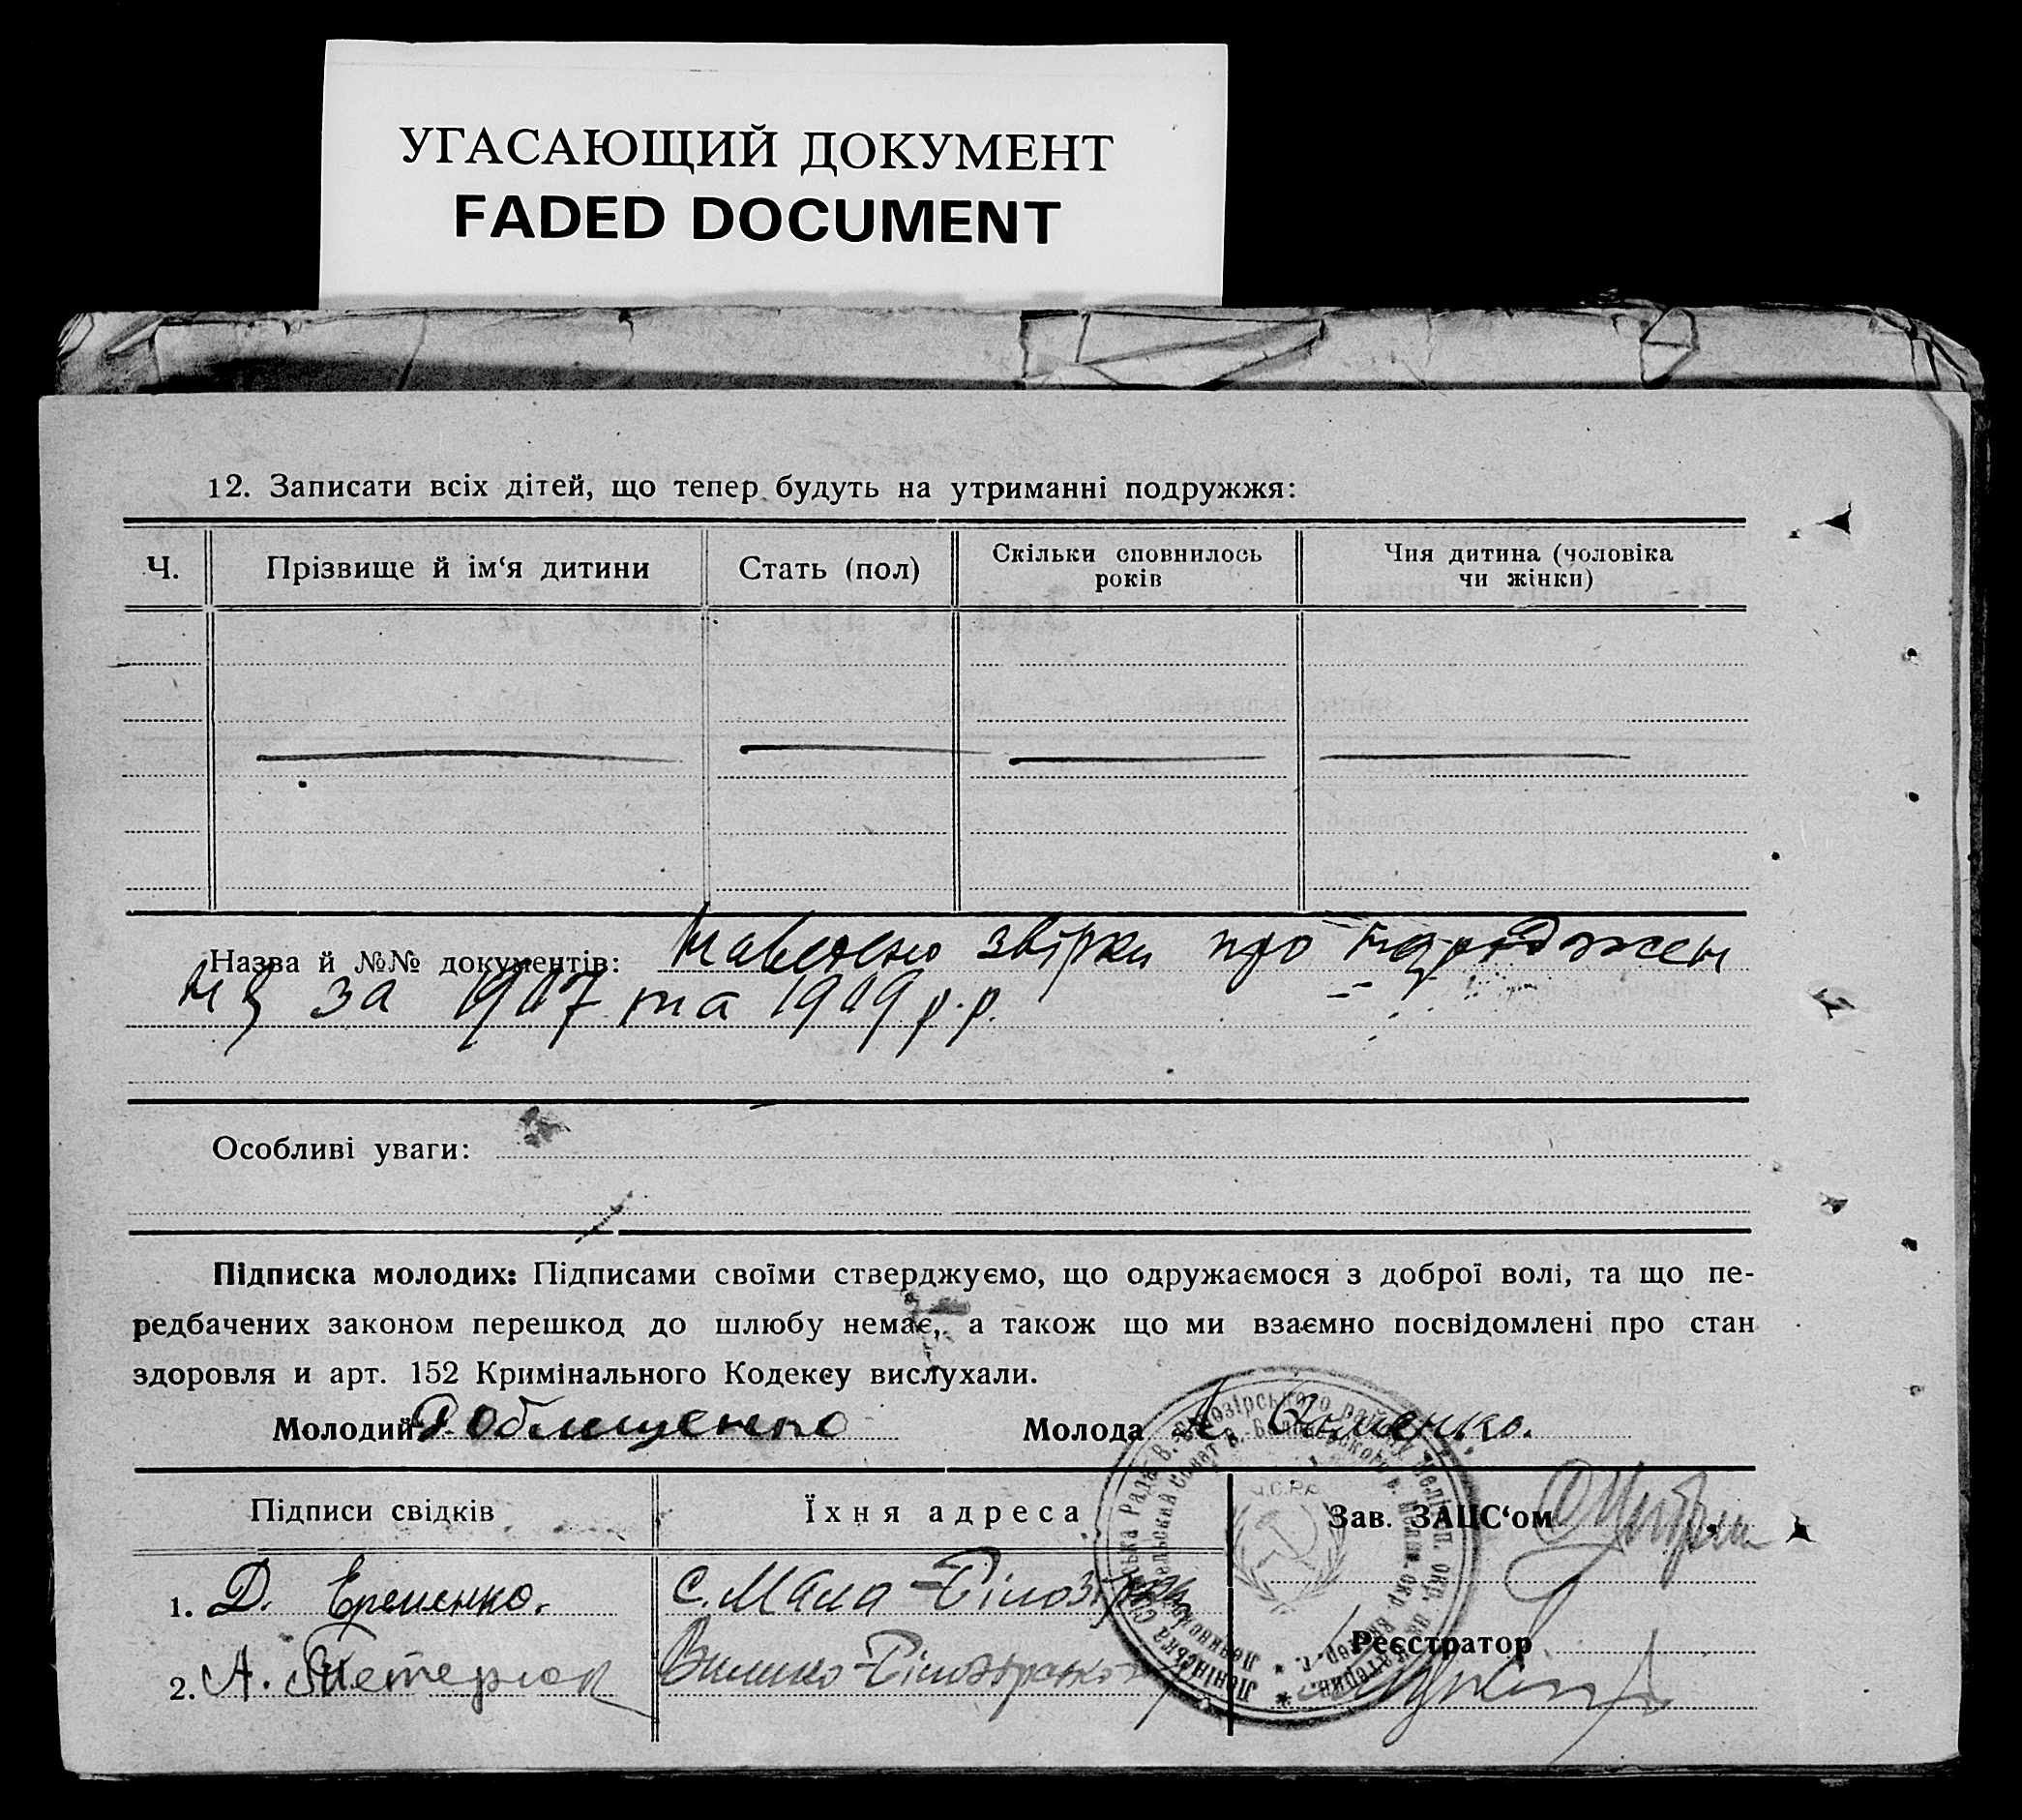 УГАСАЮЩИЙ ДОКУМЕНТ
FADED DOCUMENT
12. Записати всіх дітей, що тепер будуть на утриманні подружжя:
Ч.
Прізвище й ім‘я дитини
Стать (пол)
Скільки сповнилось
років
Чия дитина (чоловіка
чи жінки)
Назва й №№ документів: звірки про народжен
ня за 1907 та 1909 р.р.
Особливі уваги:
Підписка молодих: Підписами своїми стверджуємо, що одружаємося з доброї волі, та що пе-
редбачених законом перешкод до шлюбу немає, а також що ми взаємно посвідомлені про стан
здоровля и арт. 152 Кримінального Кодексу вислухали.
Молодий
Молода
Підписи свідків
Їхня адреса
Зав. ЗАЦС‘ом
1. Д. Еременко. с. Мала-Білозірка
Реєстратор
2. А.